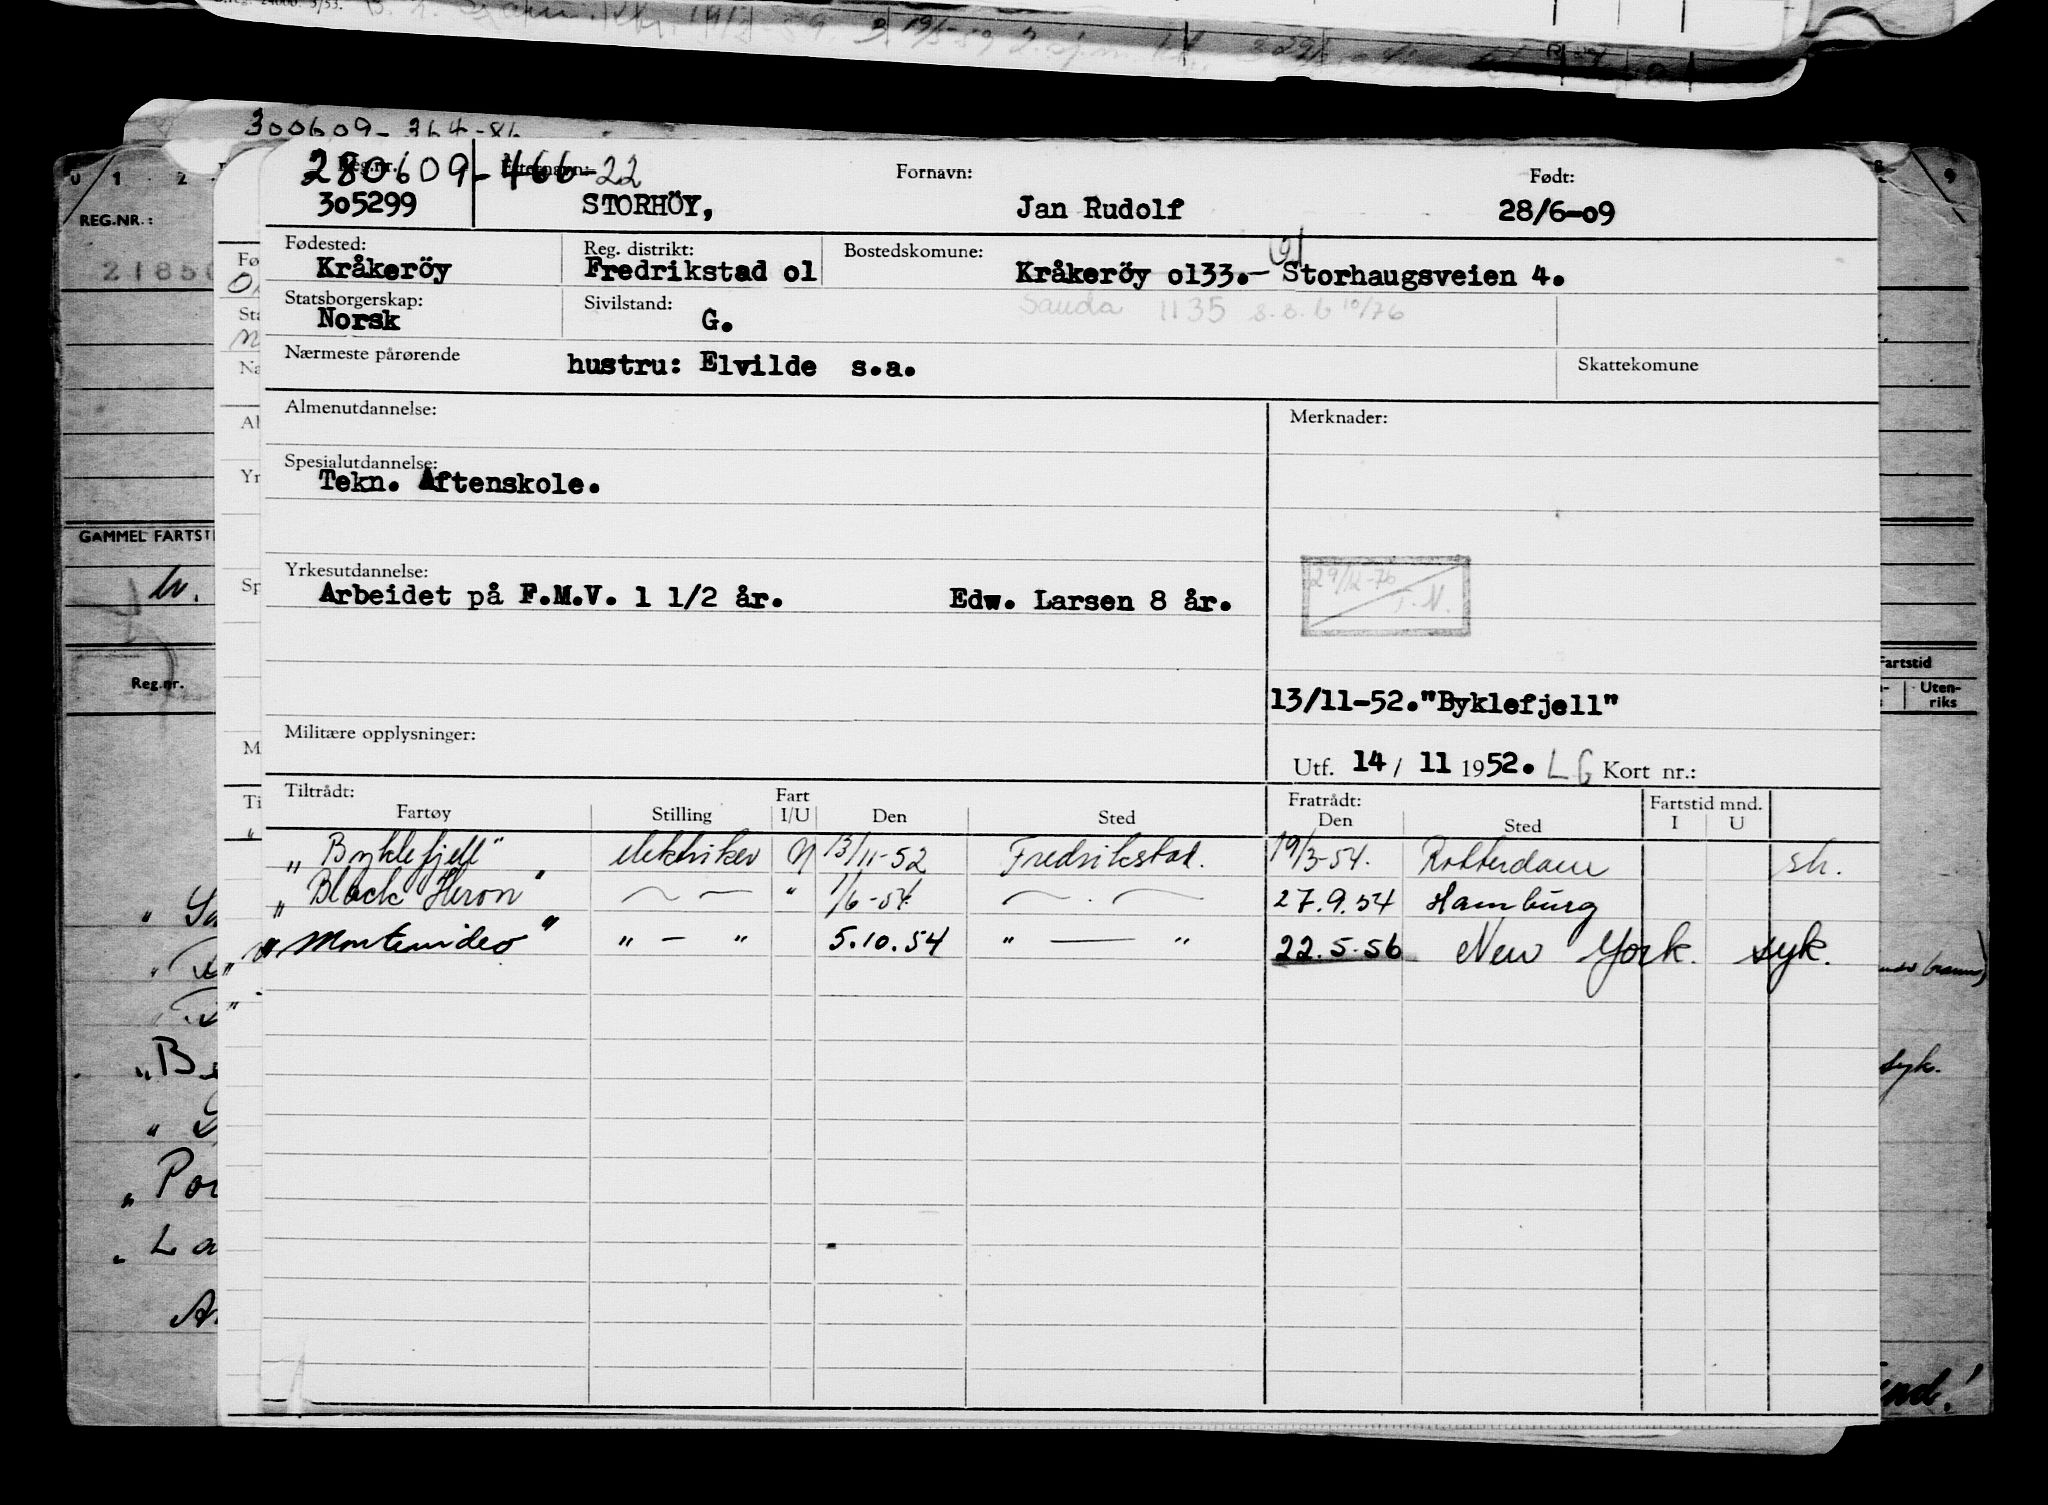 300609-364-86
280609-466-22
Reg.nr. Etternavn: Fornavn: Født:
305299 STORHÖY, Jan Rudolf 28/6-09
Fødested: Reg. distrikt: Bostedskomune:
Kråkeröy Fredrikstad o1 Kråkeröy o133.- Storhaugsveien 4.
Statsborgerskap: Sivilstand: Sauda 1135 s.s.b 10/76
Norsk G.
Nærmeste pårørende hustru: Elvilde s.a. Skattekomune
Almenutdannelse: Merknader:
Spesialutdannelse:
Tekn. Aftenskole.
29/12-76
T.N.
Yrkesutdannelse:
Arbeidet på F.M.V. 1 1/2 år. Edw. Larsen 8 år.
13/11-52."Byklefjell"
Militære opplysninger:
Utf. 14/ 11 1952. LG Kort nr.:
Tiltrådt: Fratrådt: Fartstid mnd.
Fartøy Stilling Fart I/U Den Sted Den Sted I U
„Byklefjell" elektriker U 13/11-52 Fredrikstad. 19/3-54. Rotterdam sh.
„Black Heron" — — " 1/6-54 — . — 27.9.54 Hamburg
"Montevideo" " — " 5.10.54 " — " 22.5.56 New York. syk.
REG.NR.:
2185
GAMMEL FARTSTI
Reg.nr.
Fartstid
Uten-
riks
syk.